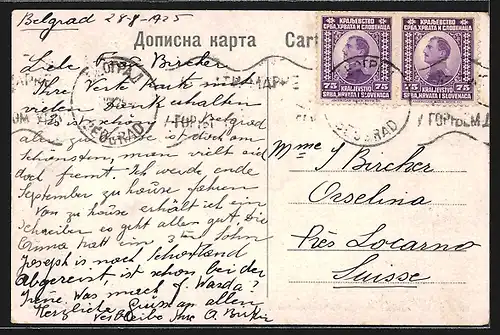 Belgrad 28-8-1925
Дописна карта
Cart
КРАЉЕВСТВО
СРБА, ХРВАТА И СЛОВЕНАЦА
75 75
KRALJEVSTVO
SRBA, HRVATA I SLOVENACA
КРАЉЕВСТВО
СРБА, ХРВАТА И СЛОВЕНАЦА
75 75
KRALJEVSTVO
SRBA, HRVATA I SLOVENACA
BEOGRAD
BEOGRAD
Liebe Frau Bircher
Ihre Karte
vielen Dank erhalten
Belgrad
aber zu House ist doch am
schönsten, man sich
doch fremd. Ich werde ende
September zu house fahren
Von zu house erhalte ich ein
Schreiben es geht allen gut. Die
Emma hatt ein 3ten Sohn
Joseph is nach Schottland
Abgereist, ist schon bei der
Irene. Was mach f. Wanda?
Herzliche Grüsse an allen
Ihre A.
Mme J Bircher
Orselina
Près Locarno
Suisse